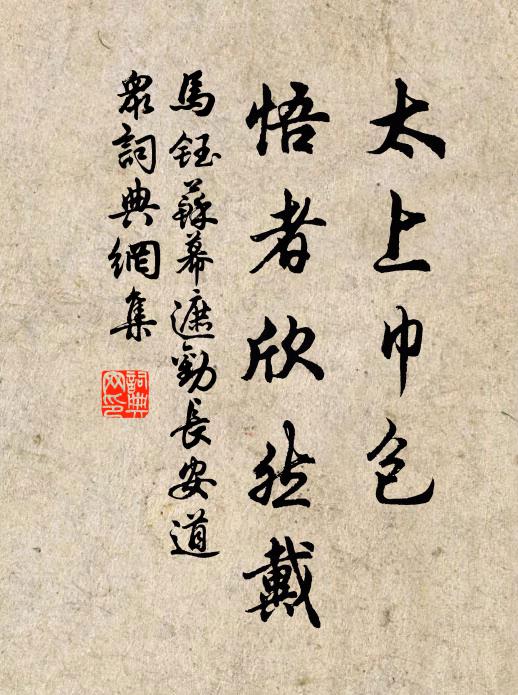 太上巾包
悟者欣然戴
馬鈺蘇幕遮勸長安道
眾詞典網集
詞典网印